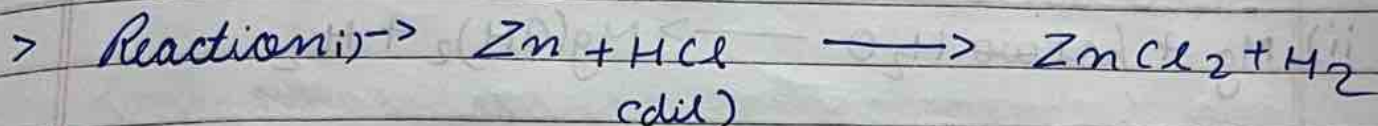 > Reaction:-> Zn + HCl ⟶ ZnCl₂ + H₂
(dil)